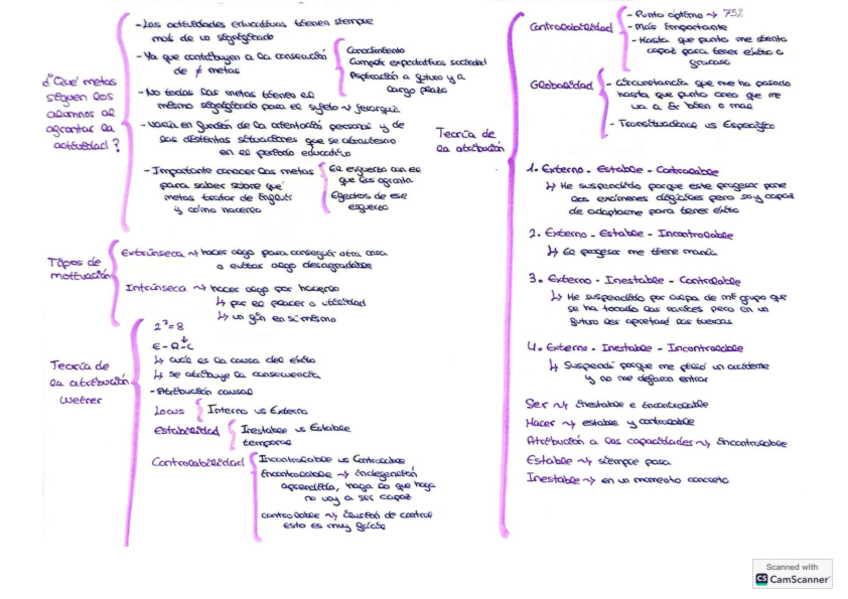 ¿Qué metas
siguen los
alumnos al
afrontar la
actividad?
- Las actividades educativas tienen siempre
más de un significado
- Ya que contribuyen a la consecución
de ≠ metas
Conocimiento
Cumplir expectativas sociedad
Aspiración a futuro y a
largo plazo
- No todas las metas tienen el
mismo significado para el sujeto ~> jerarquía
- Varía en función de la orientación personal y de
las distintas situaciones que se atraviesan
en el período educativo
- Importante conocer las metas
para saber sobre qué
metas tratar de influir
y cómo hacerlo
El esfuerzo con el
que las afronta
Efectos de ese
esfuerzo
Tipos de
motivación
Extrínseca ~> hacer algo para conseguir otra cosa
o evitar algo desagradable
Intrínseca ~> hacer algo por hacerlo
↳ por el placer o utilidad
↳ un fin en sí mismo
Teoría de
la atribución
Weiner
2³=8
E-R-C
↳ cuál es la causa del éxito
↳ se atribuye la consecuencia
- Atribución causal
Locus
Interno vs Externo
Estabilidad
Inestable vs Estable
temporal
Controlabilidad
Incontrolable vs Controlable
Incontrolable ~> indefensión
aprendida, haga lo que haga
no voy a ser capaz
controlable ~> ilusión de control
esto es muy fácil
Teoría de
la atribución
Controlabilidad
- Punto óptimo ~> 75%
- Más importante
- Hasta que punto me siento
capaz para tener éxito o
fracaso
Globalidad
- Circunstancia que me ha pasado
hasta que punto creo que me
va a ir bien o mal
- Transituacional vs Específico
1. Externo - Estable - Controlable
↳ He suspendido porque este profesor pone
los exámenes difíciles pero soy capaz
de adaptarme para tener éxito
2. Externo - Estable - Incontrolable
↳ El profesor me tiene manía
3. Externo - Inestable - Controlable
↳ He suspendido por culpa de mi grupo que
se ha tocado las narices pero en un
futuro les apretaré las tuercas
4. Externo - Inestable - Incontrolable
↳ Suspendí porque me pilló un accidente
y no me dejaron entrar
Ser ~> inestable e incontrolable
Hacer ~> estable y controlable
Atribución a las capacidades ~> Incontrolable
Estable ~> siempre pasa
Inestable ~> en un momento concreto
Scanned with
CS CamScanner